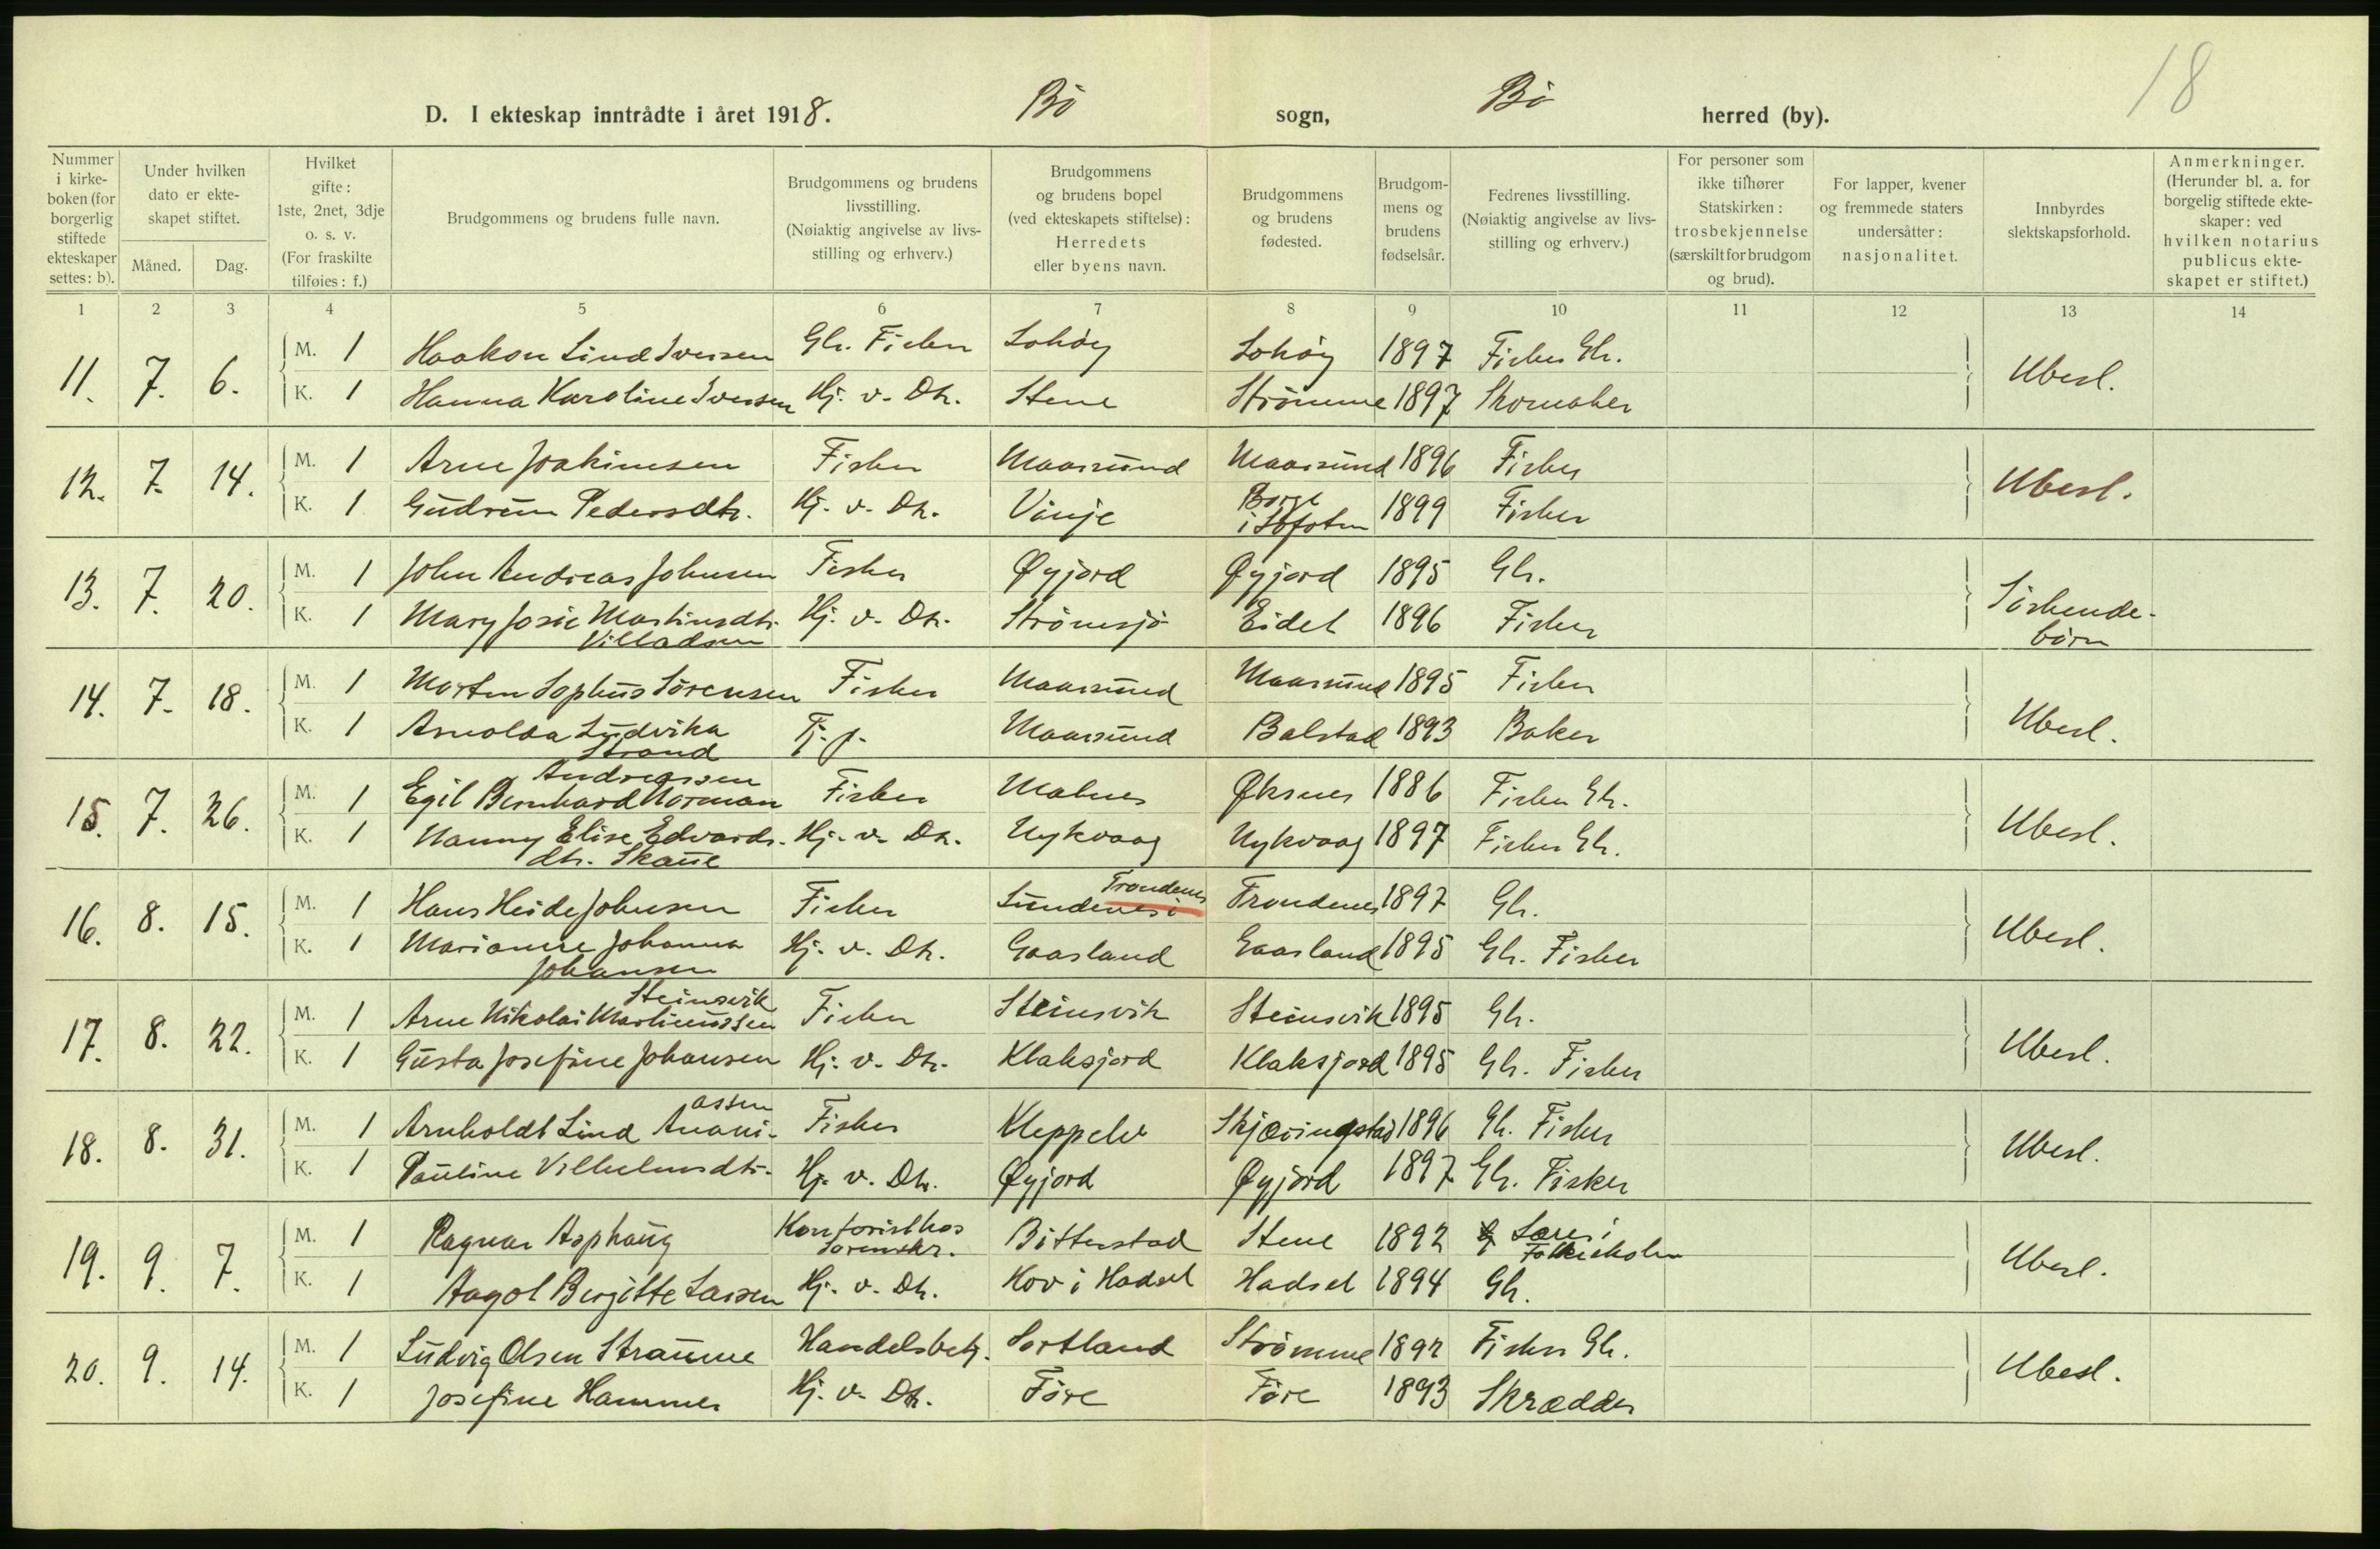 18
D. I ekteskap inntrådte i året 1918. Bö sogn, Bö herred (by).
Nummer i kirke-boken (for borgerlig stiftede ekteskaper settes: b).
Under hvilken dato er ekte-skapet stiftet.
Måned. Dag.
Hvilket gifte: 1ste, 2net, 3dje o. s. v. (For fraskilte tilføies: f.)
Brudgommens og brudens fulle navn.
Brudgommens og brudens livsstilling. (Nøiaktig angivelse av livs-stilling og erhverv.)
Brudgommens og brudens bopel (ved ekteskapets stiftelse): Herredets eller byens navn.
Brudgommens og brudens fødested.
Brudgom-mens og brudens fødselsår.
Fedrenes livsstilling. (Nøiaktig angivelse av livs-stilling og erhverv.)
For personer som ikke tilhører Statskirken: trosbekjennelse (særskilt for brudgom og brud).
For lapper, kvener og fremmede staters undersåtter: nasjonalitet.
Innbyrdes slektskapsforhold.
Anmerkninger. (Herunder bl. a. for borgelig stiftede ekte-skaper: ved hvilken notarius publicus ekte-skapet er stiftet.)
1 2 3 4 5 6 7 8 9 10 11 12 13 14
11. 7. 6. M. 1 Haakon Lind Iversen Gb. Fisker Lohöy Lohöy 1897 Fisker Gb. Ubesl.
K. 1 Hanna Karoline Iversen Hj. v. Dt. Stene Strömme 1897 Skomaker
12. 7. 14. M. 1 Arne Joakimsen Fisker Maarsund Maarsund 1896 Fisker Ubesl.
K. 1 Gudrun Pedersdtr. Hj. v. Dt. Vinje Borge i Lofoten 1899 Fisker
13. 7. 20. M. 1 John Andreas Johnsen Fisker Øyjord Øyjord 1895 Gb. Söskende-börn
K. 1 Mary Josie Martinsdtr. Villadsen Hj. v. Dt. Strömsjö Eidet 1896 Fisker
14. 7. 18. M. 1 Morten Sophus Sörensen Fisker Maarsund Maarsund 1895 Fisker Ubesl.
K. 1 Arnolda Ludvika Strand Tj. p. Maarsund Balstad 1893 Baker
15. 7. 26. M. 1 Egil Bernhard Norman Andreassen Fisker Malnes Øksnes 1886 Fisker Gb. Ubesl.
K. 1 Nanny Elise Edvards-dtr. Skaue Hj. v. Dt. Nykvaag Nykvaag 1897 Fisker Gb.
16. 8. 15. M. 1 Hans Heide Johnsen Fisker Sundenes i Trondenes Trondenes 1897 Gb. Ubesl.
K. 1 Marianne Johanna Johansen Hj. v. Dt. Gaasland Gaasland 1895 Gb. Fisker
17. 8. 22. M. 1 Arne Nikolai Martinussen Steinsvik Fisker Steinsvik Steinsvik 1895 Gb. Ubesl.
K. 1 Gusta Josefine Johansen Hj. v. Dt. Klaksjord Klaksjord 1895 Gb. Fisker
18. 8. 31. M. 1 Arnholdt Lind Anani-assen Fisker Kleppelv Skjæringstad 1896 Gb. Fisker Ubesl.
K. 1 Pauline Vilhelmsdtr. Hj. v. Dt. Øyjord Øyjord 1897 Gb. Fisker
19. 9. 7. M. 1 Ragnar Asphaug Kontorist hos Sorenskr. Bitterstad Stene 1892 Lærer i Folkeskolen Ubesl.
K. 1 Aagot Bergitte Larsen Hj. v. Dt. Hov i Hadsel Hadsel 1894 Gb.
20. 9. 14. M. 1 Ludvig Olsen Straume Handelsbetj. Sortland Strömme 1892 Fisker Gb. Ubesl.
K. 1 Josefine Hammer Hj. v. Dt. Före Före 1893 Skrædder